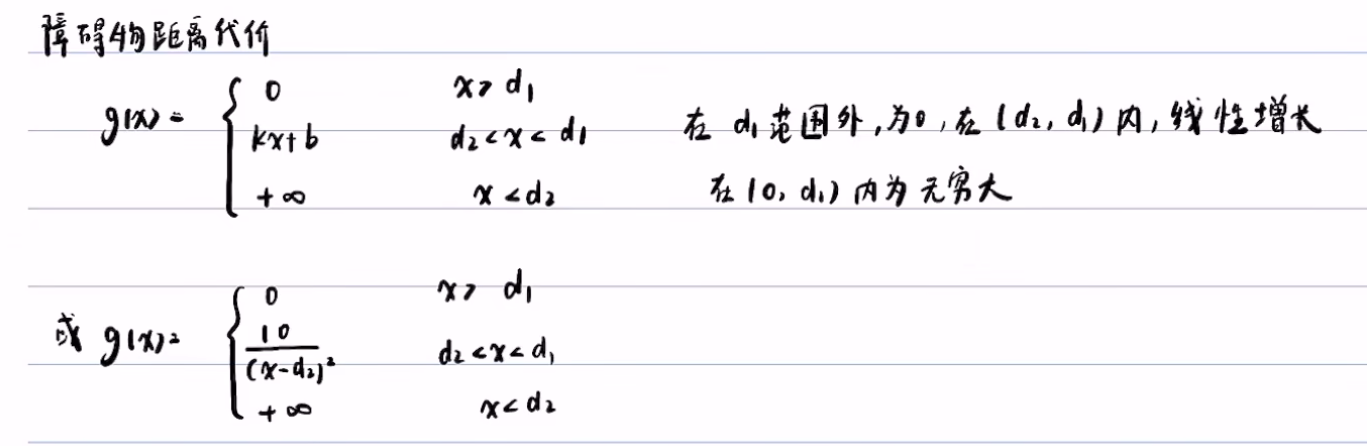 障碍物距离代价
g(x) = { 0 x > d₁
kx+b d₂ < x < d₁ 在 d₁ 范围外,为0,在 (d₂, d₁) 内,线性增长
+∞ x < d₂ 在 (0, d₁) 内为无穷大
或 g(x) = { 0 x > d₁
10/(x-d₂)² d₂ < x < d₁
+∞ x < d₂